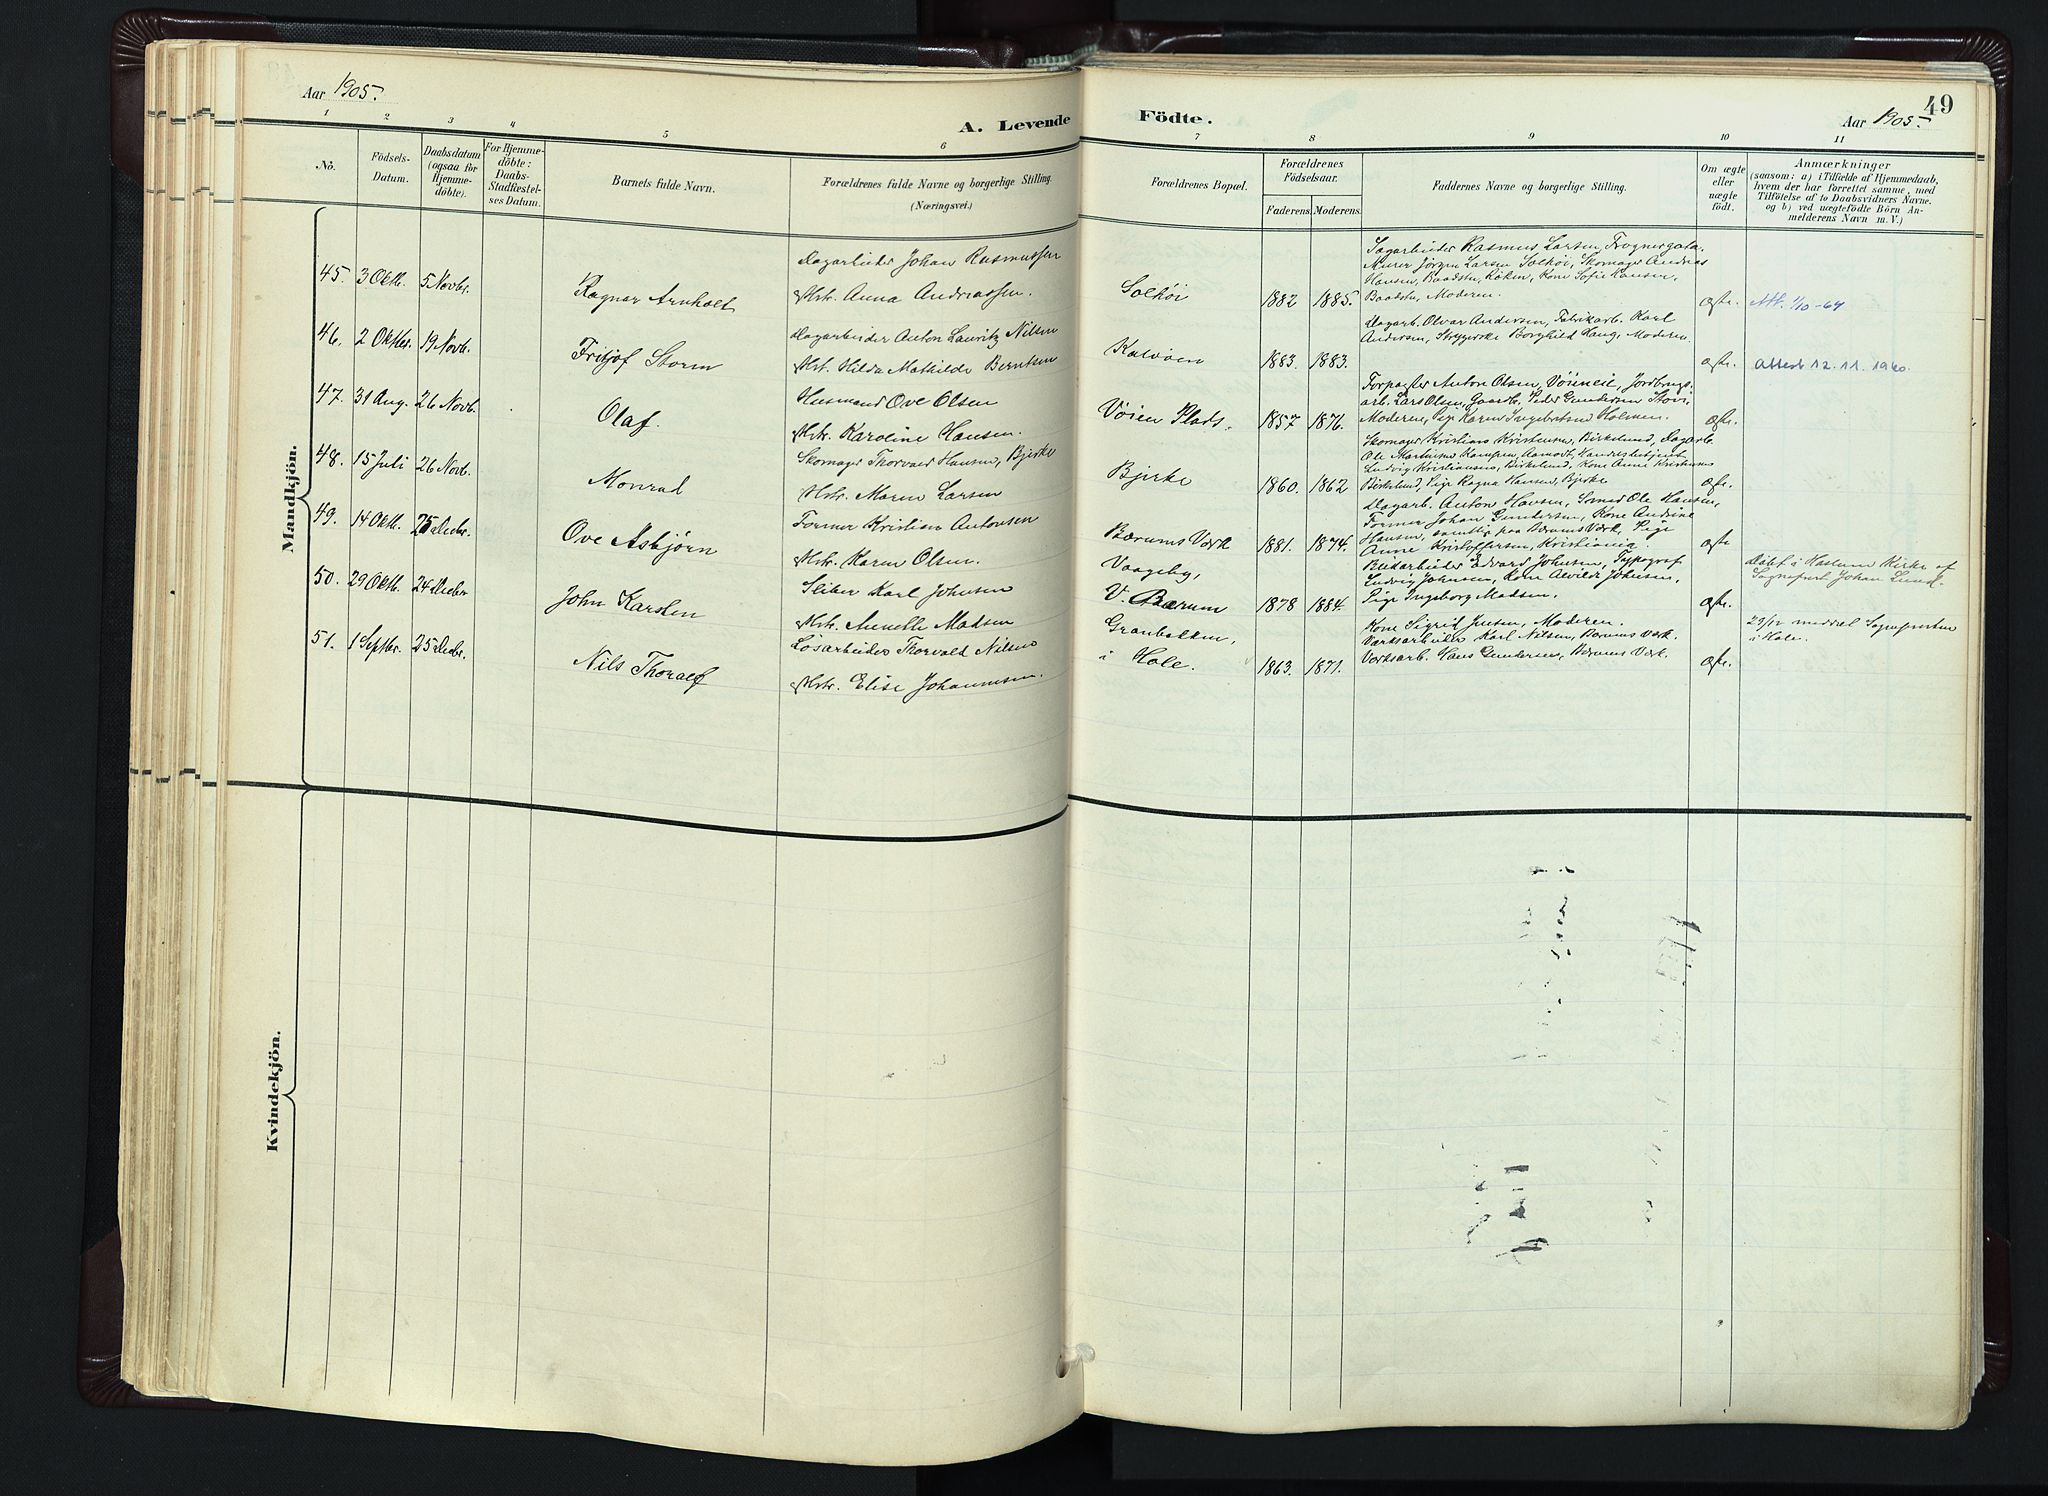 Aar 1905.
A. Levende Födte.
Aar 1905.
49
1 2 3 4 5 6 7 8 9 10 11
No.
Födsels-
Datum.
Daabsdatum
(ogsaa for
Hjemme-
döbte).
For Hjemme-
döbte:
Daabs-
Stadfæstel-
ses Datum.
Barnets fulde Navn.
Forældrenes fulde Navne og borgerlige Stilling.
(Næringsvei.)
Forældrenes Bopæl.
Forældrenes
Födselsaar.
Faderens. Moderens.
Faddernes Navne og borgerlige Stilling.
Om ægte
eller
uægte
födt.
Anmærkninger
(saasom: a) i Tilfælde af Hjemmedaab,
hvem der har forrettet samme, med
Tilföielse af to Daabsvidners Navne.
og b) ved uægtefödte Börn An-
melderens Navn m. V.)
Mandkjön.
45. 3 Oktb. 5 Novbr. Ragnar Arnholt
Dagarbeider Johan Rasmussen
Hstr. Anna Andreassen.
Solhöi
1882 1885.
Sagarbeider Rasmus Larsen, Frognergata.
Murer Jörgen Larsen Solhöi, Skomager Andreas
Hansen, Baadstø, Röken, Kone Sofie Hansen,
Baadstø, Moderen.
ægte. Att. 1/10-64
46. 2 Oktbr. 19 Novb. Fritjof Storm
Dagarbeider Anton Lauritz Nilsen
Hst. Hilda Mathilde Berntsen
Kalvöen
1883. 1883.
Dagarb. Olvar Andersen, Fabrikarb. Karl
Andersen, Strygerske Borghild Haug, Moderen.
ægte. Attest 12.11.1960.
47. 31 Aug. 26 Novb. Olaf.
Husmand Ove Olsen
Hstr. Karoline Hansen.
Vöien Plads.
1857 1876.
Forpagter Anton Olsen, Vöieneie, Jordbrugs.
arb. Lars Olsen, Gaardb. Peder Gundersen Stovi,
Moderen, Pige Karen Ingebretsen Holmen.
ægte.
48. 15 Juli 26 Novb. Monrad
Skomager Thorvald Hansen, Bjerke
Hstr. Maren Larsen
Bjerke
1860. 1862
Skomager Kristians Kristensen, Birkelund, Dagarb.
Ole Martinsen Kampen, Aamodt, Handelsbetjent
Ludvig Kristiansen, Birkelund, Kone Anne Kristensen
Birkelund, Pige Ragna Hansen, Bjerke
49. 14 Oktb. 25 Decbr. Ove Asbjörn
Former Kristian Antonsen
Hstr. Karen Olsen.
Bærums Værk
1881. 1874.
Dagarb. Anton Hansen, Smed Ole Hansen,
Former Johan Gundersen, Kone Andrine
Hansen, samtlige paa Bærums Værk, Pige
Anne Kristoffersen, Kristiania
ægte
50. 29 Oktb. 24 Decbr John Karsten
Sliber Karl Johnsen
Hstr. Annette Madsen
Vaageby,
V. Bærum
1878 1884.
Edvard Johnsen, Typograf
Ludvig Johnsen, Kone Alvilde Johnsen,
Pige Ingeborg Madsen.
ægte.
Döbt i Haslum Kirke af
Sognepræst Johan Lund.
51. 1 Septbr. 25 Decbr. Nils Thoralf
Lösarbeider Thorvald Nilsen
Hstr. Elise Johannesen.
i Hole.
1863. 1871.
Kone Sigrid Jensen, Moderen.
Værksarbeider Karl Nilsen, Bærums Værk.
Værksarb. Hans Gundersen, Bærums Værk.
ægte.
29/12 meddelt Sognepræsten
i Hole.
Kvindekjön.